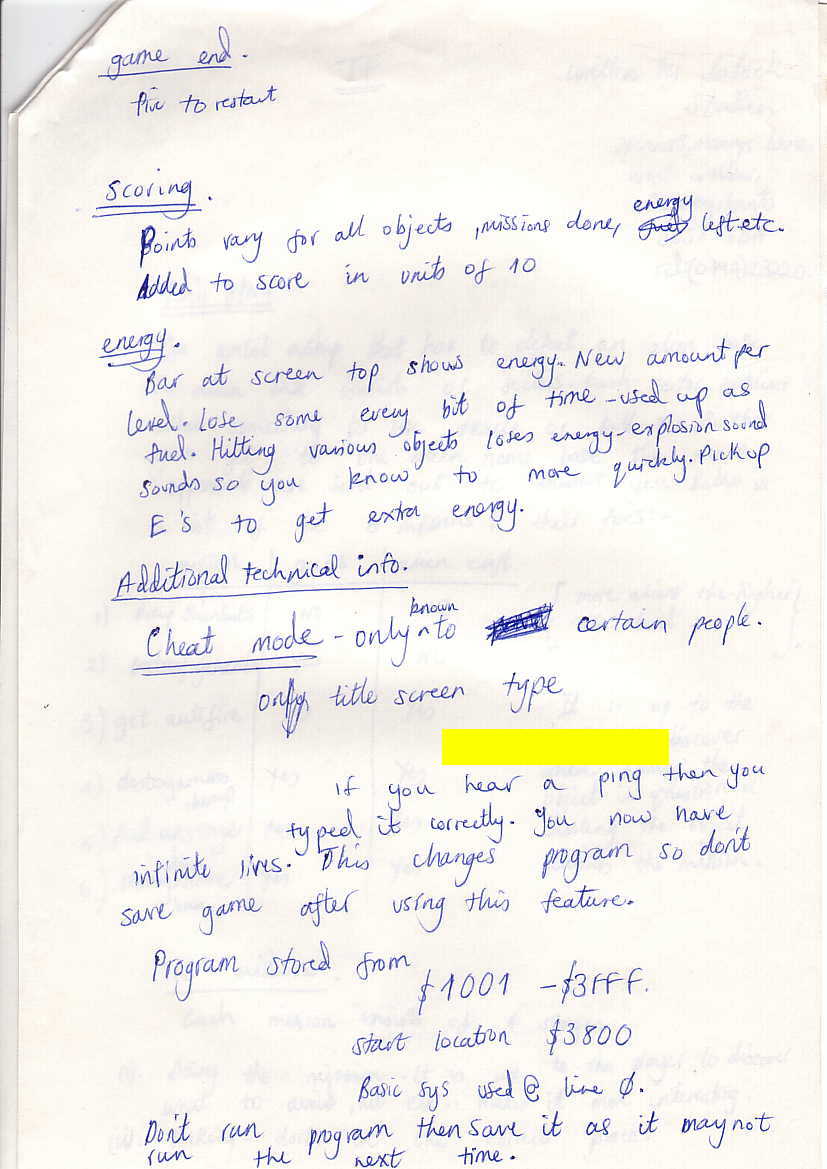 game end.
fire to restart
Scoring.
Points vary for all objects, missions done, energy left etc.
Added to score in units of 10
energy.
Bar at screen top shows energy. New amount per
level. Lose some every bit of time - used up as
fuel. Hitting various objects loses energy - explosion sound
sounds so you know to move quickly. Pick up
E's to get extra energy.
Additional technical info.
Cheat mode - only known to certain people.
on title screen type
If you hear a ping then you
typed it correctly. You now have
infinite lives. This changes program so don't
save game after using this feature.
Program stored from
$1001 - $3FFF.
start location $3800
Basic sys used @ line 0.
Don't run program then save it as it may not
run the next time.